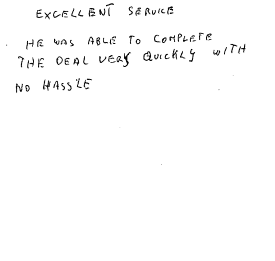 EXCELLENT SERVICE
HE WAS ABLE TO COMPLETE
THE DEAL VERY QUICKLY WITH
NO HASSLE